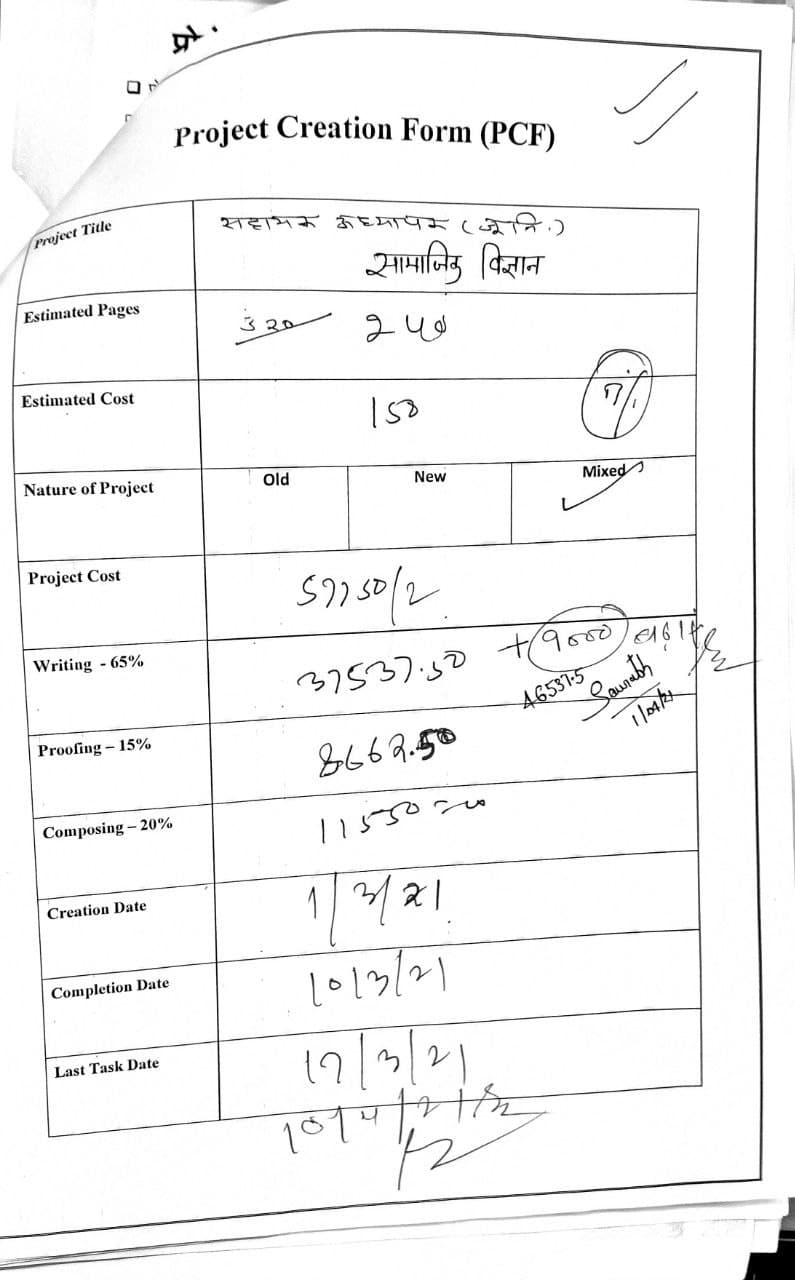 प्रो.
Project Creation Form (PCF)
Project Title
सहायक अध्यापक (जूनि.)
सामाजिक विज्ञान
Estimated Pages
320 240
Estimated Cost
150
Nature of Project
Old New Mixed
Project Cost
57750/
Writing - 65%
37537.50 + 9000
46537.5 Saurabh
1/04/21
Proofing – 15%
8662.50
Composing – 20%
11550=00
Creation Date
1/3/21
Completion Date
10/3/21
Last Task Date
17/3/21
10/4/21